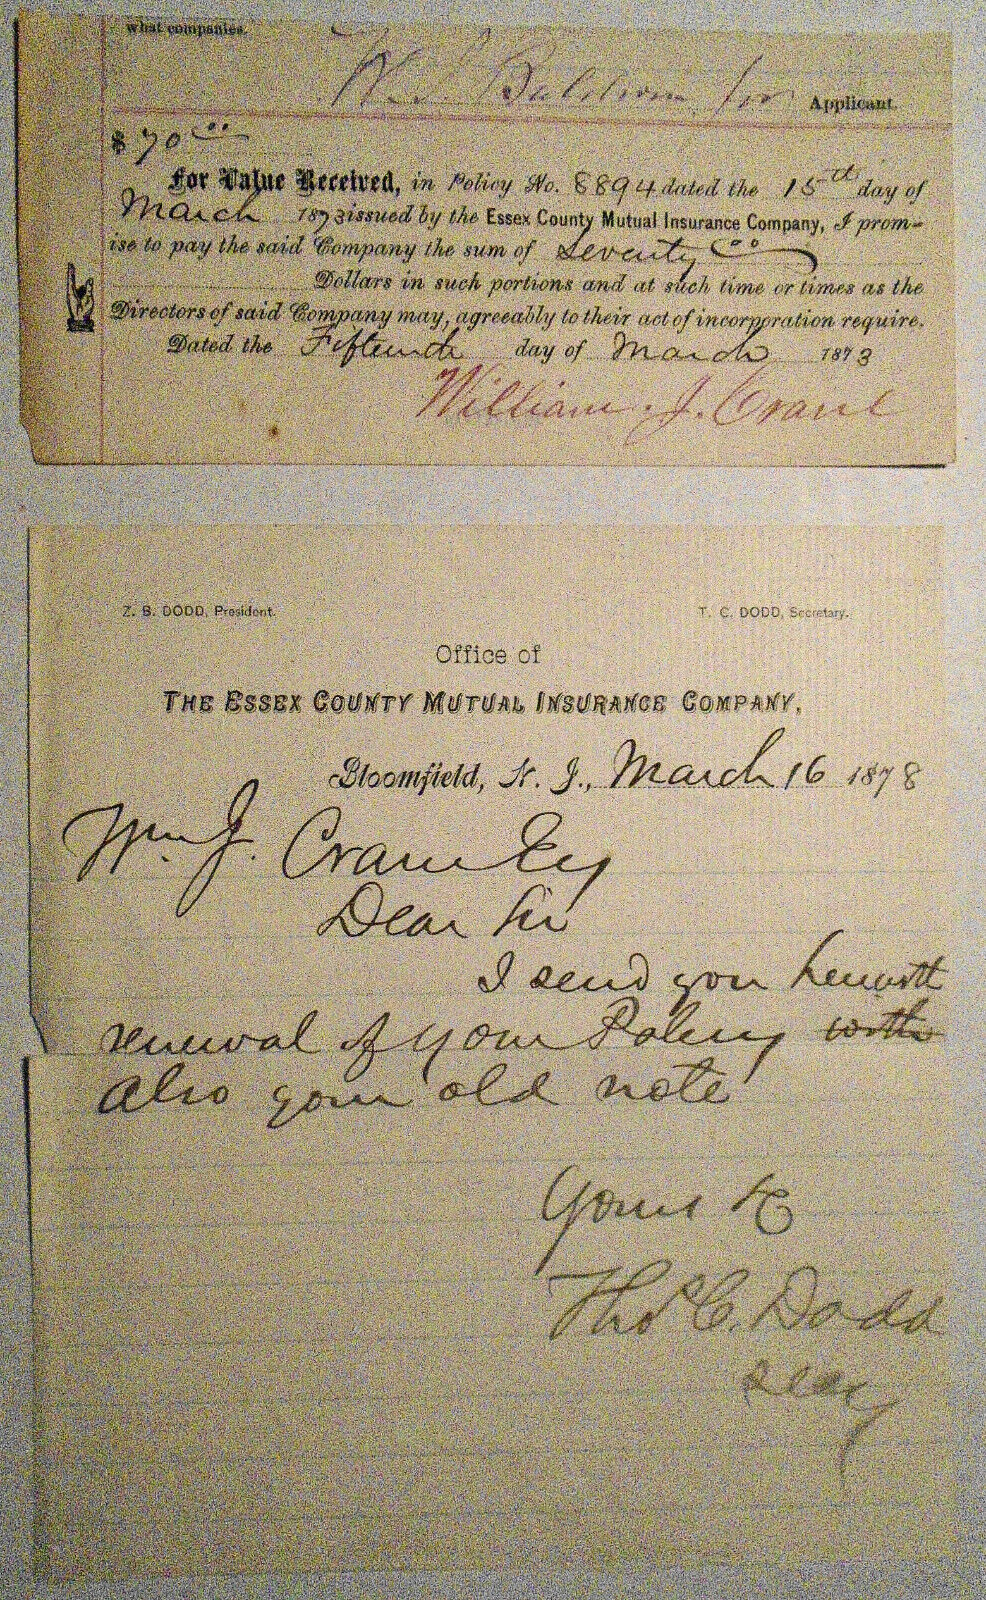 what companies.
Baldwin for Applicant
$ 70 00
For Value Received, in Policy No. 8894 dated the 15th day of
March 1873 issued by the Essex County Mutual Insurance Company, I prom-
ise to pay the said Company the sum of Seventy 00
Dollars in such portions and at such time or times as the
Directors of said Company may, agreeably to their act of incorporation require.
Dated the Fifteenth day of March 1873
William. J. Crane
Z. B. DODD, President. T. C. DODD, Secretary.
Office of
THE ESSEX COUNTY MUTUAL INSURANCE COMPANY,
Bloomfield, N. J., March 16 1878
Wm. J. Crane Esq
Dear Sir
I send you herewith
renewal of your Policy with
also your old note
Yours &c
Thos C. Dodd
secy